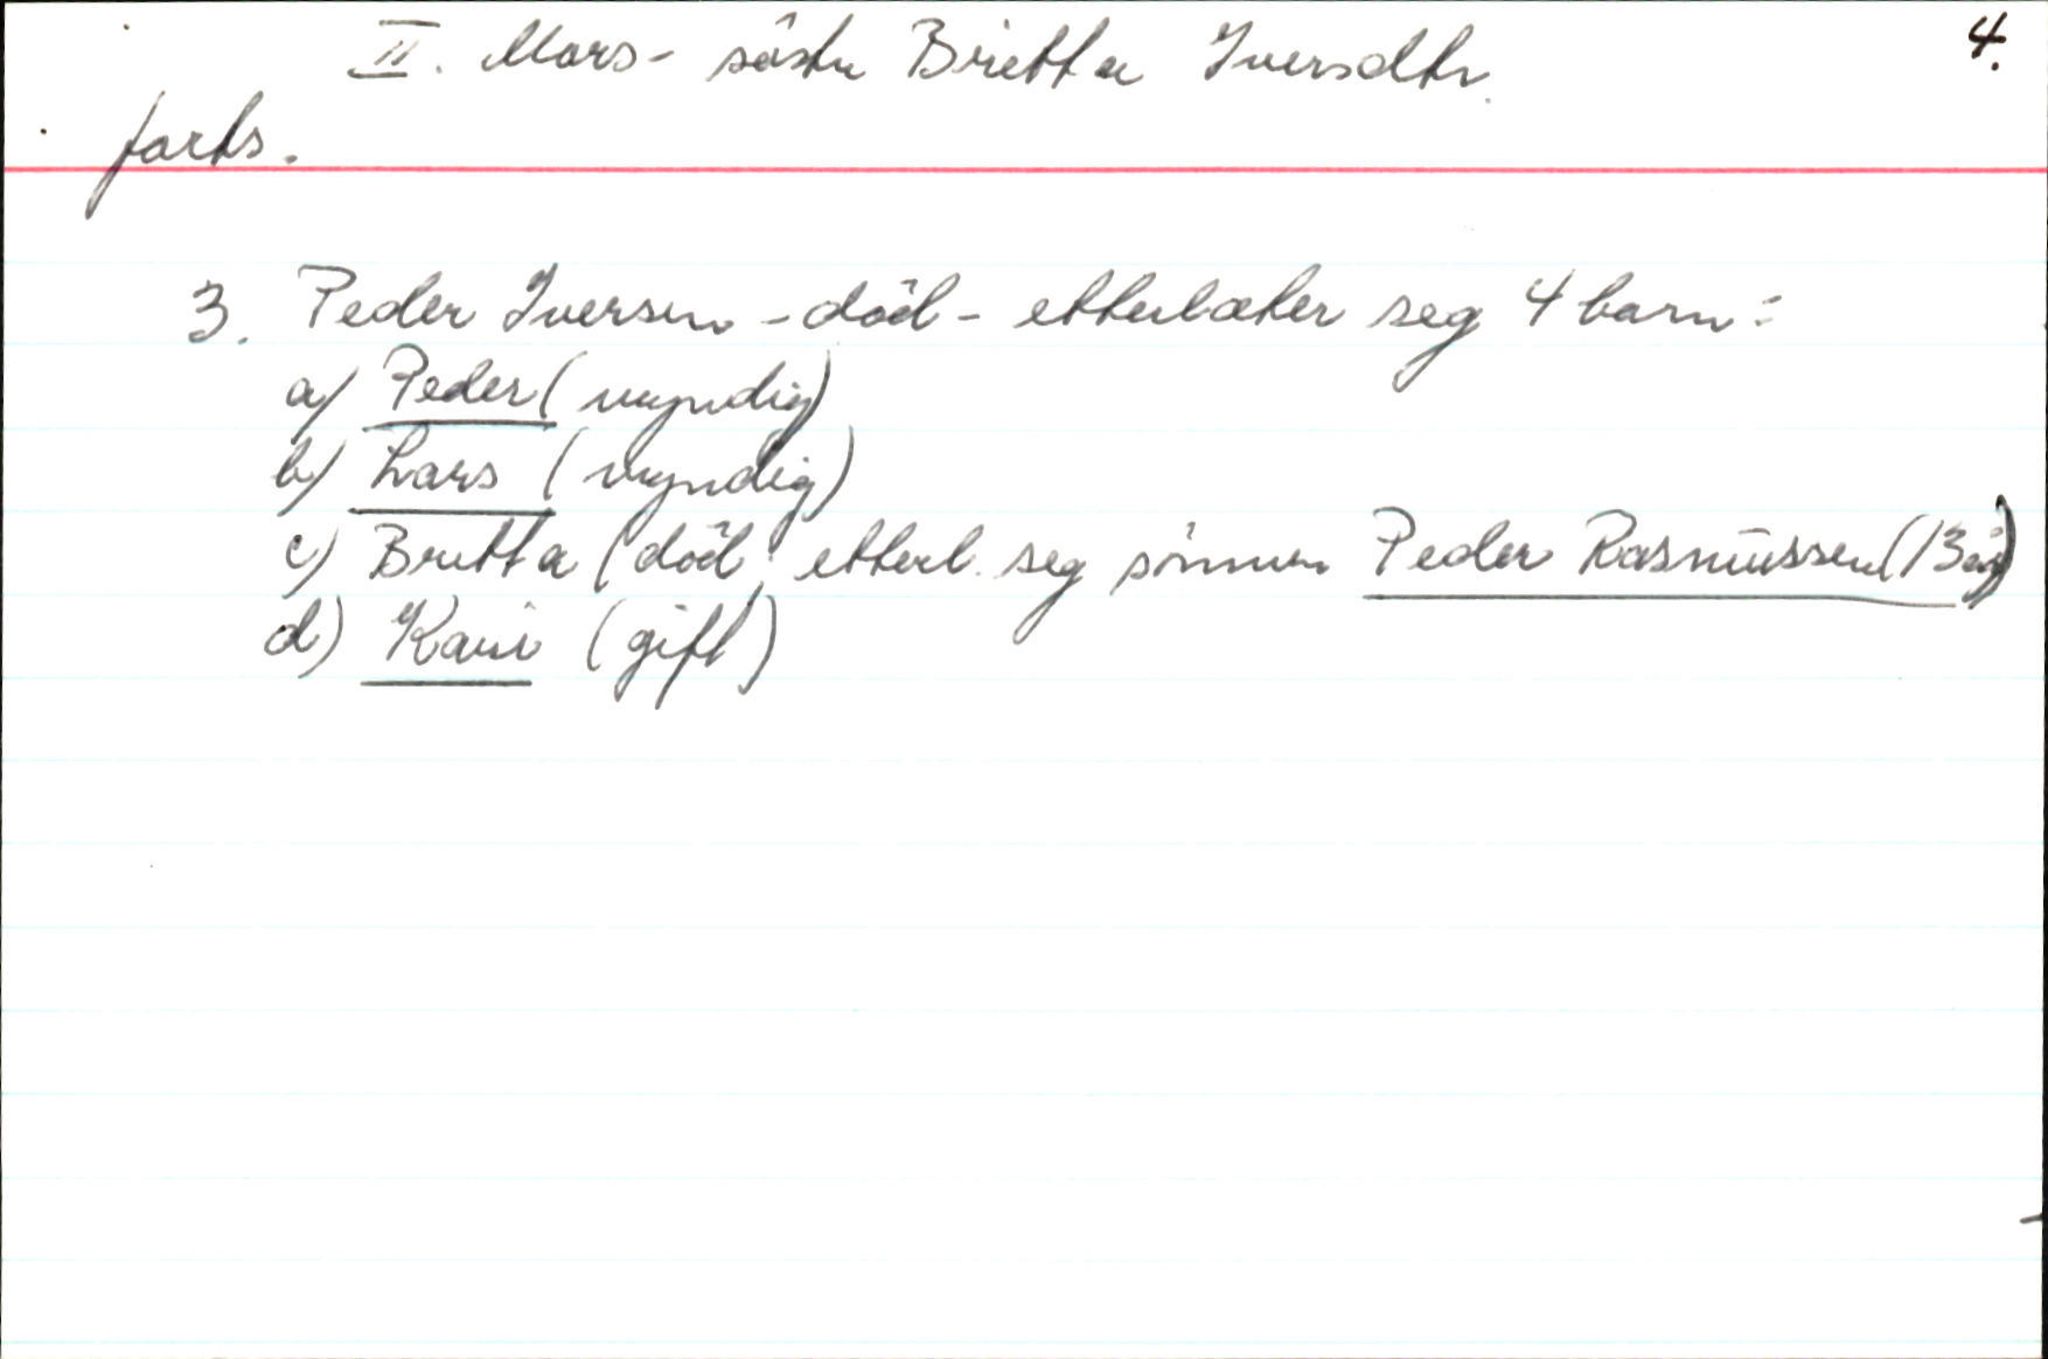 4.
II. Mors- søster Britta Iversdtr.
forts.
3. Peder Iversen - död - etterlater seg 4 barn:
a) Peder (myndig)
b) Lars (myndig)
c) Britta (död, etterl. seg sønnen Peder Rasmussen (13 år)
d) Kari (gift)